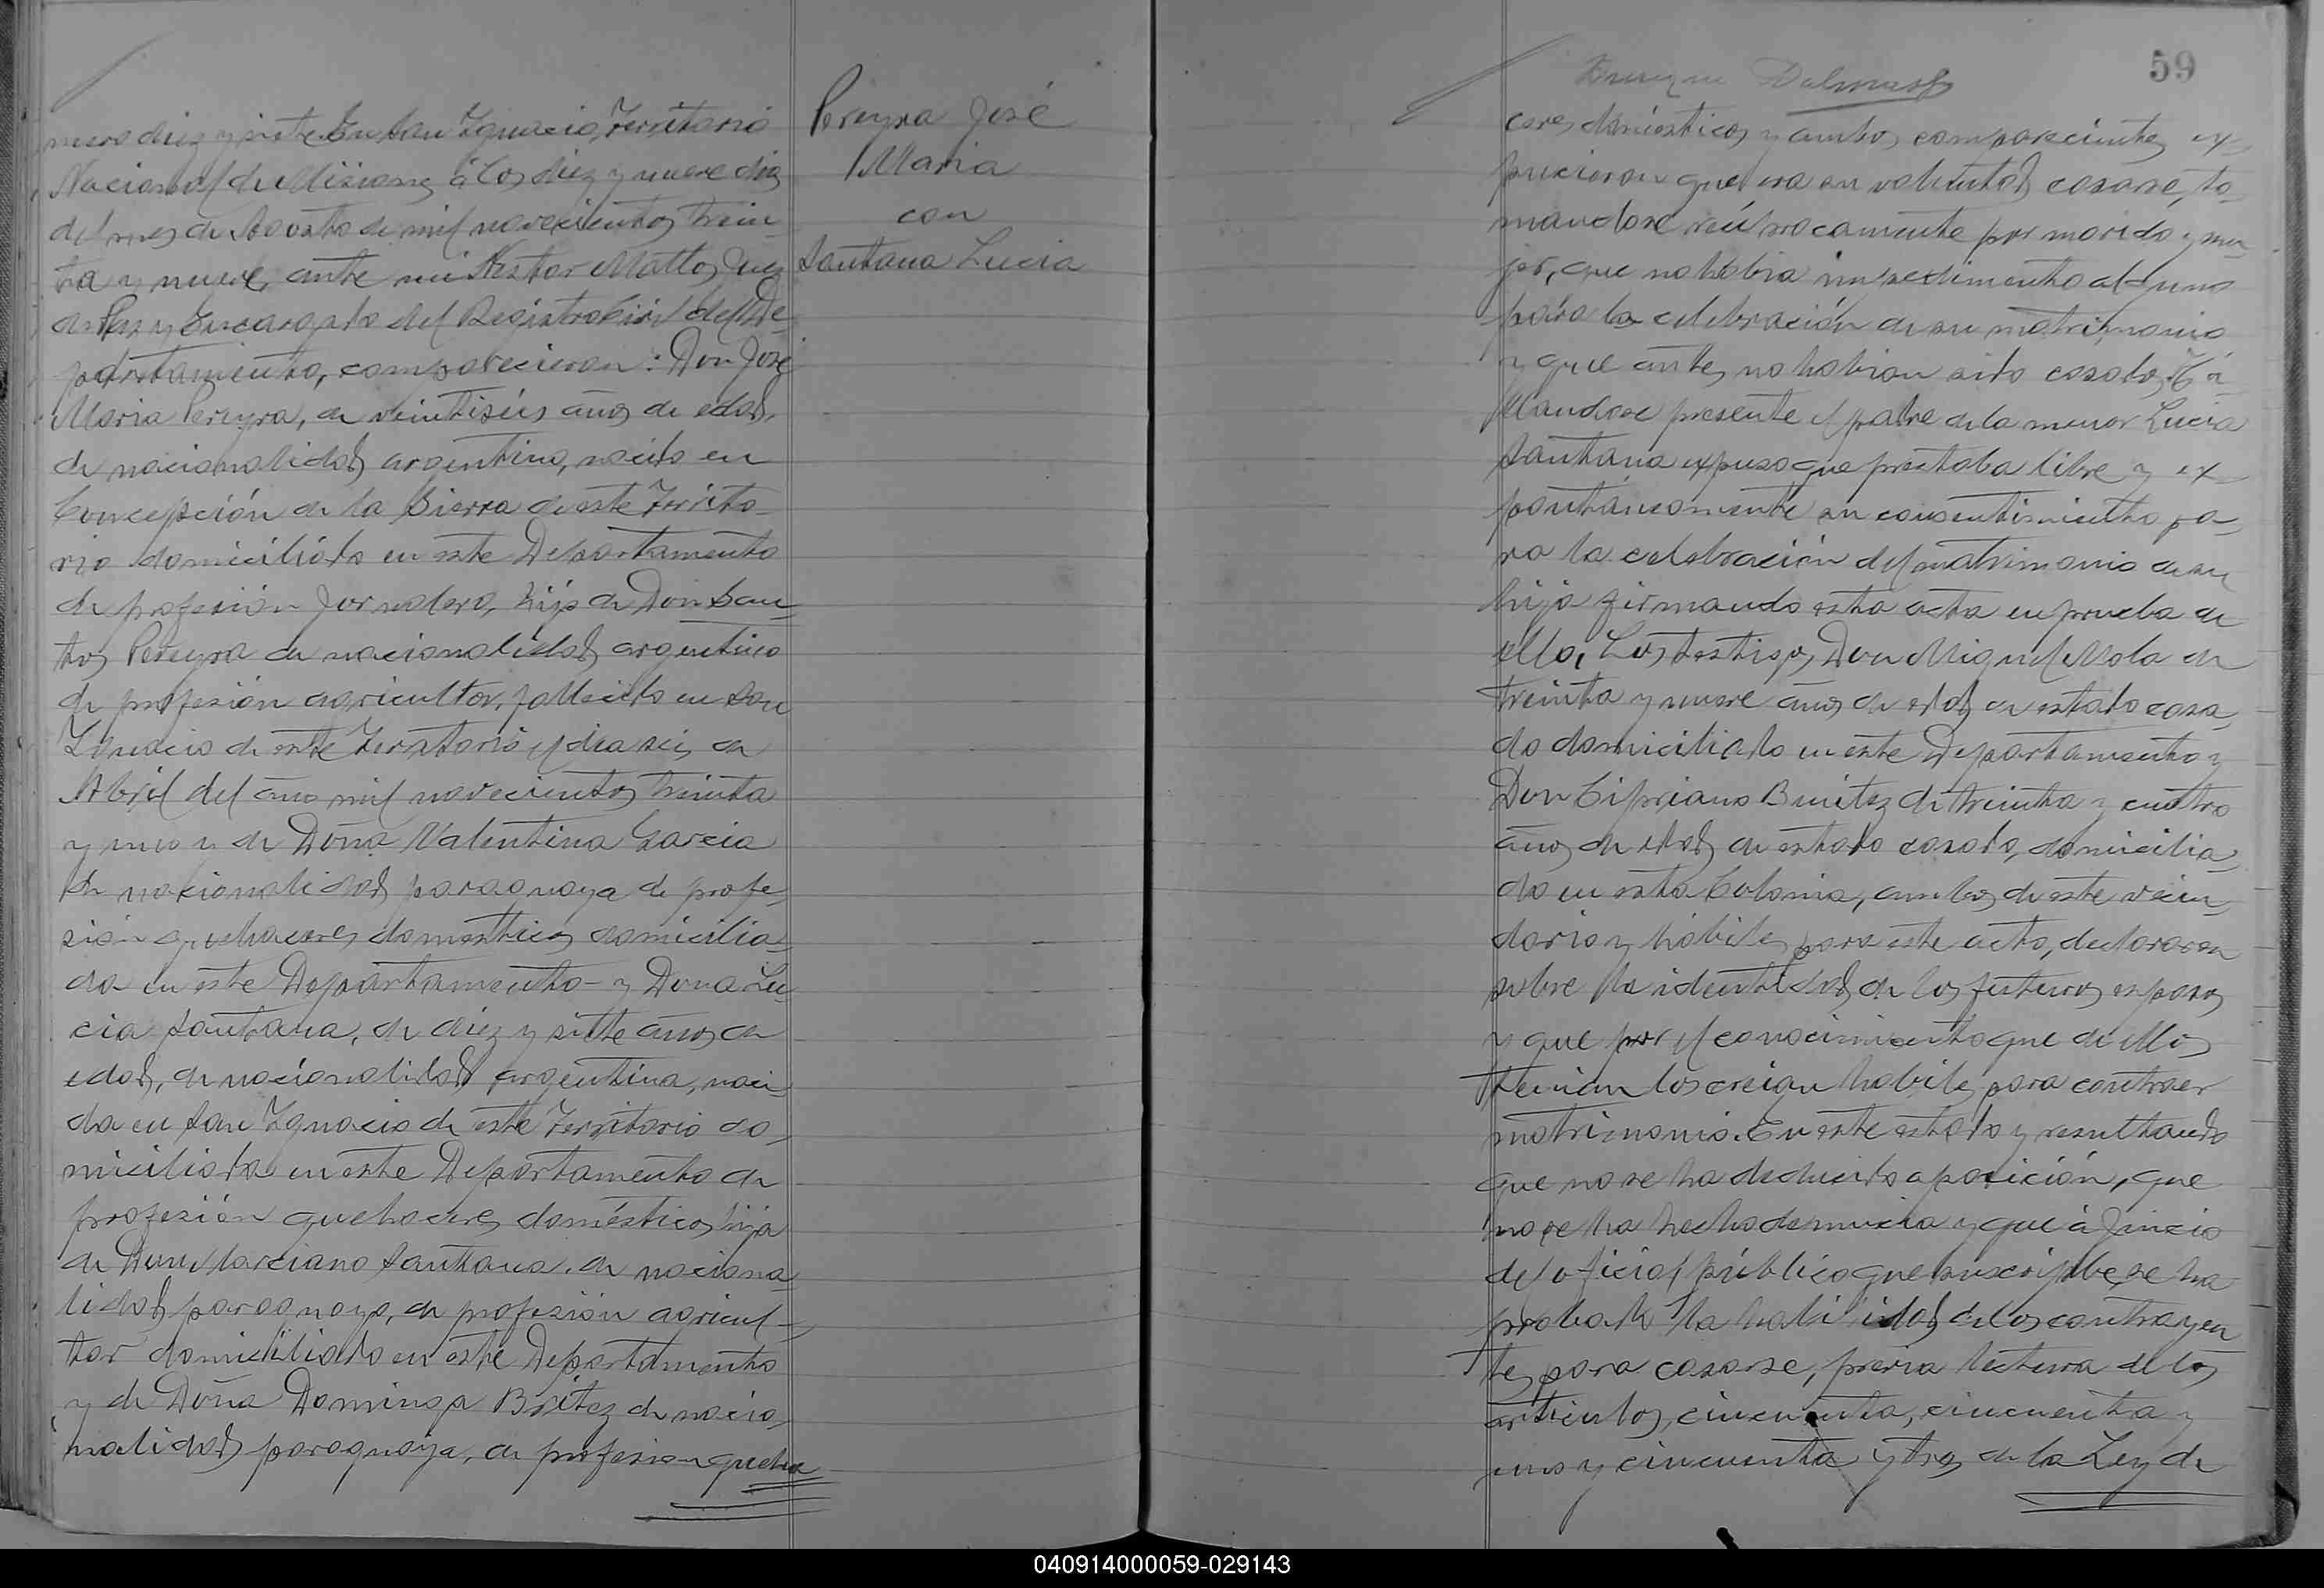 mero diez y siete En San Ignacio, Territorio
Nacional de Misiones á los diez y nueve dias
del mes de Agosto de mil novecientos trein-
ta y nueve, ante mi Nestor Matto, Juez
de Paz y Encargado del Registro Civil del De-
partamento, comparecieron: Don José
Maria Pereyra, de veintiséis años de edad,
de nacionalidad argentino, nacido en
Concepción de la Sierra de este Territo-
rio domiciliado en este Departamento
de profesión Jornalero, hijo de Don San-
tos Pereyra de nacionalidad argentino
de profesión agricultor, fallecido en San
Ignacio de este Territorio el dia seis de
Abril del año mil novecientos treinta
y uno y de Doña Valentina Garcia
de nacionalidad paraguaya de profe-
sión quehaceres domesticos domicilia-
da en este Departamento - y Dona Lu-
cia Santana, de diez y siete años de
edad, de nacionalidad argentina, naci-
da en San Ignacio de este Territorio do-
miciliada en este Departamento de
profesión quehaceres domésticos hija
de Don Marciano Santana, de naciona-
lidad paraguayo, de profesión agricul-
tor domiciliado en este Departamento
y de Doña Dominga Britez de nacio-
nalidad paraguaya, de profesion queha
Pereyra José
Maria
con
Santana Lucia
59
Dalmasso
ceres domésticos y ambos comparecientes ex-
pusieron que era su voluntad casarse, to-
mandose recíprocamente por marido y mu-
jer, que no habia impedimento alguno
para la celebración de su matrimonio
y que antes no habian sido casados. Ha-
llandose presente el padre de la menor Lucia
Santana expuso que prestaba libre y ex-
pontáneamente su consentimiento pa-
ra la celebración del matrimonio de su
hija firmando esta acta en prueba de
ello, Los testigos, Don Miguel Mola de
treinta y nueve años de edad de estado casa-
do domiciliado en este Departamento y
Don Cipriano Benitez de treinta y cuatro
años de edad de estado casado, domicilia-
do en esta Colonia, ambos de este vecin-
dario y hábiles para este acto, declararon
sobre la identidad de los futuros esposos
y que por el conocimiento que de ellos
tenian los creian habiles para contraer
matrimonio. En este estado y resultando
que no se ha deducido oposición, que
no se ha hecho denuncia y que á Juicio
del oficial público que suscribe, se ha
probado la habilidad de los contrayen
tes para casarse, previa lectura de los
articulos, cincuenta, cincuenta y
uno y cincuenta y tres de la Ley de
040914000059-029143